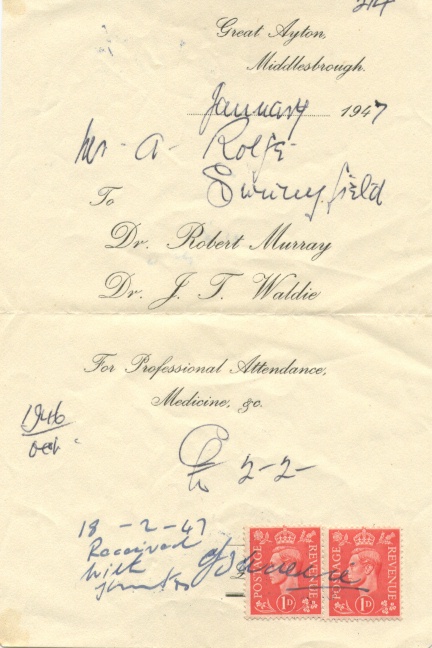 214
Great Ayton,
Middlesbrough.
January 1947
Mr. A. Rolfe
To
Dr. Robert Murray
Dr. J. T. Waldie
For Professional Attendance,
Medicine, &c.
1946
Oct
2-2-
18-2-47
Received
with
thanks
POSTAGE REVENUE 1D
POSTAGE REVENUE 1D